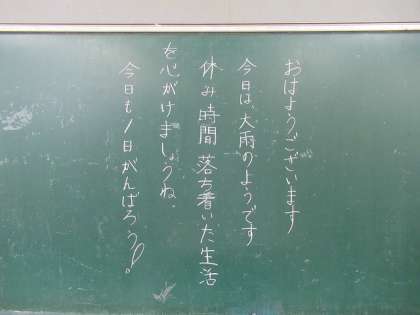 おはようございます
今日は、大雨のようです
休み時間 落ち着いた生活
を心がけましょうね.
今日も1日がんばろう!